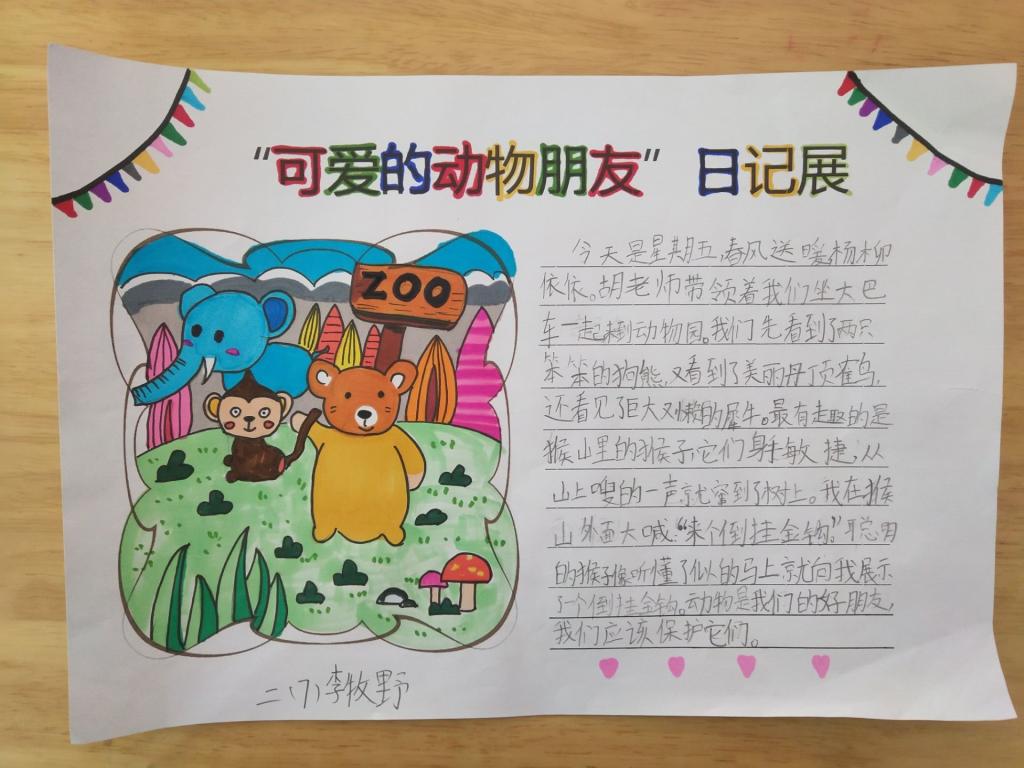 “可爱的动物朋友” 日记展
ZOO
今天是星期五,春风送暖,杨柳
依依。胡老师带领着我们坐大巴
车一起来到动物园。我们先看到了两只
笨笨的狗熊,又看到了美丽丹顶雀鸟,
还看见了巨大又懒的犀牛。最有走趣的是
猴山里的猴子,它们身手敏捷,从
山上嗖的一声就窜到了树上。我在猴
山外面大喊:“来个倒挂金钩。”聪明
的猴子像听懂了似的马上就向我展示
了个倒挂金钩。动物是我们的好朋友,
我们应该保护它们。
二(7)李牧野